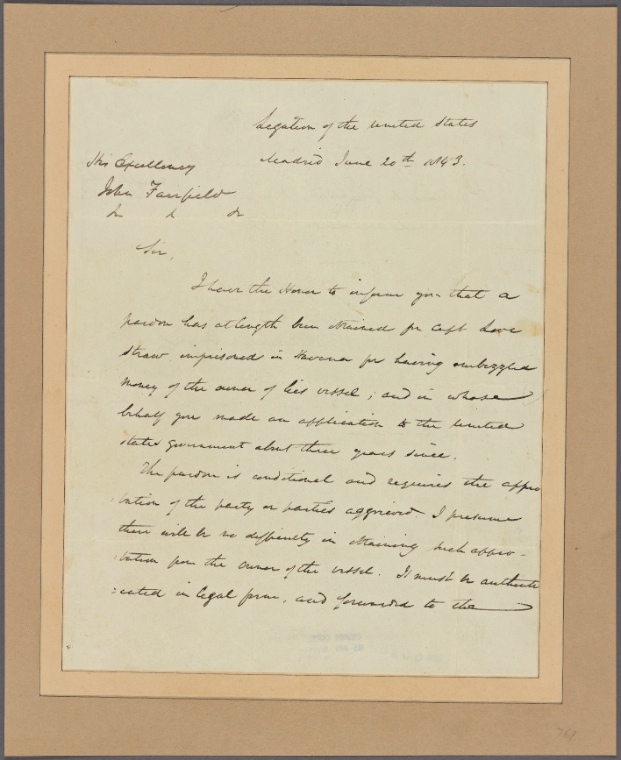 Legation of the United States
Madrid June 20th 1843.
His Excellency
John Fairfield
Sir,
I have the Honor to inform you that a
pardon has at length been obtained for Capt Love
Straw imprisoned in Havana for having embezzled
money of the owner of his vessel; and in whose
behalf you made an application to the United
States government about three years since.
The pardon is conditional and requires the appro
bation of the party or parties aggrieved. I presume
there will be no difficulty in obtaining such appro-
bation from the owner of the vessel. It must be authenti
:cated in legal form, and forwarded to the
761